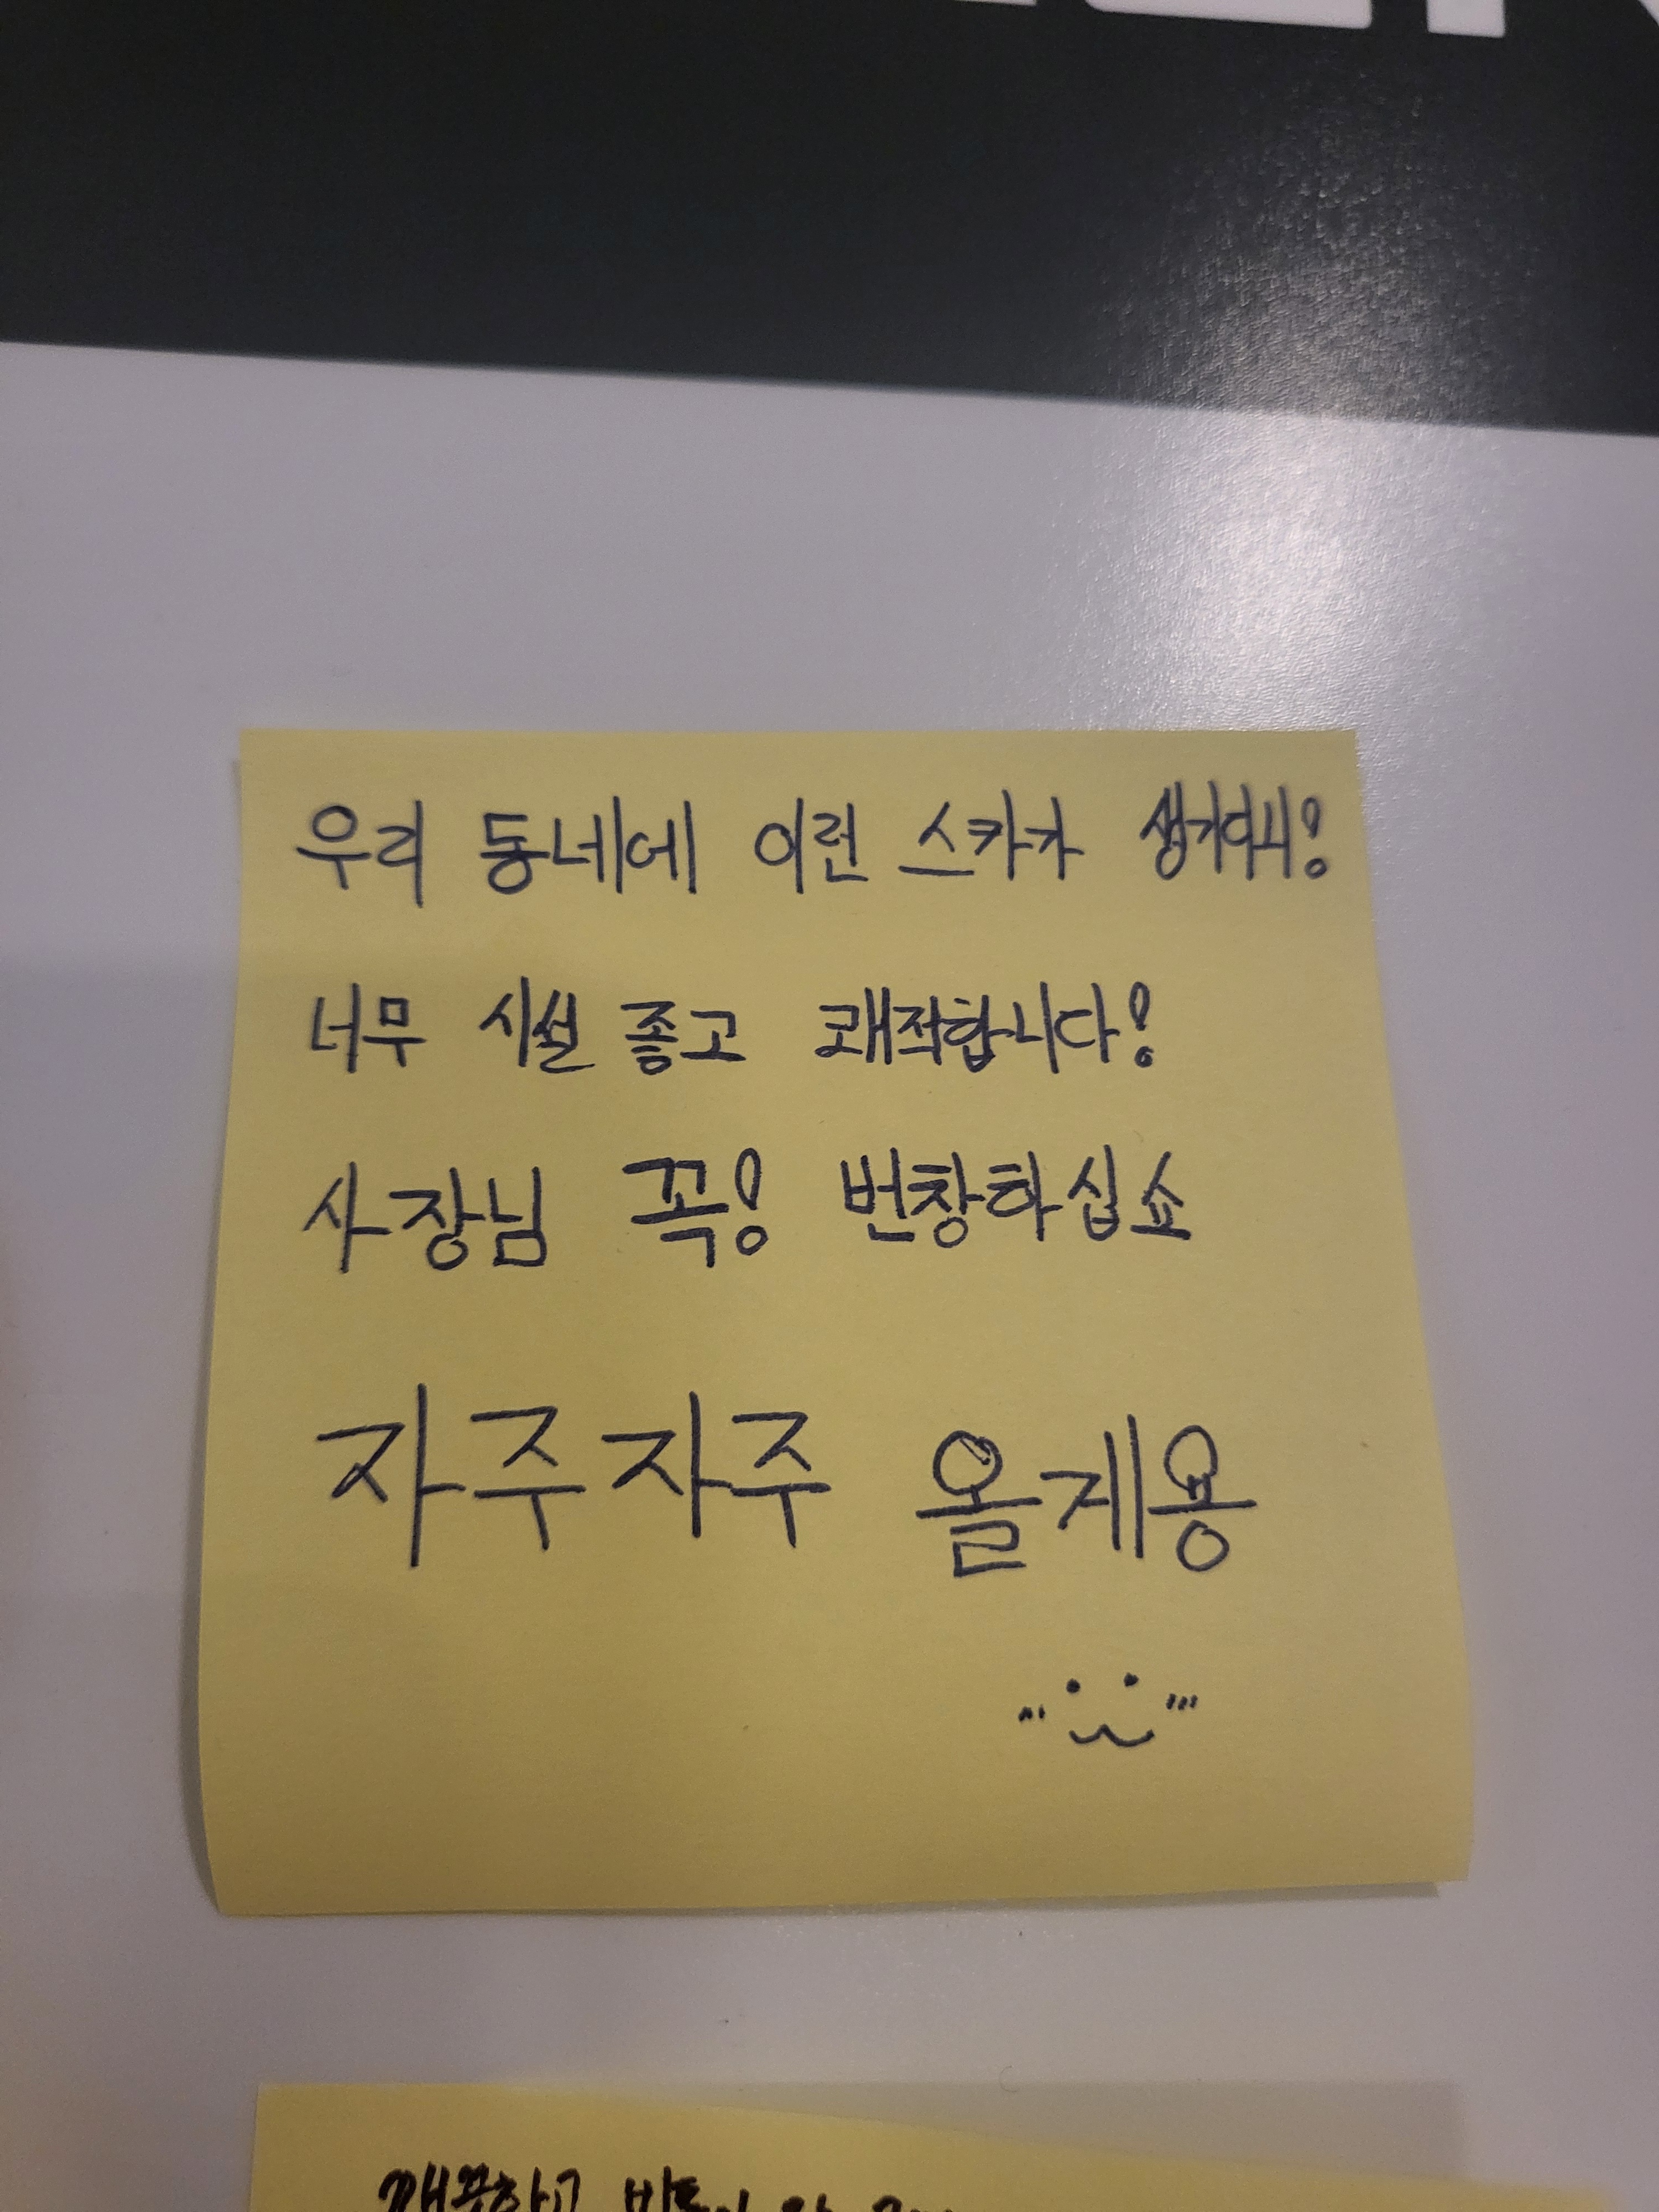 우리 동네에 이런 스카가 생기다니!
너무 시설 좋고 쾌적합니다!
사장님 꼭! 번창하십쇼
자주자주 올게용
깨끗하고